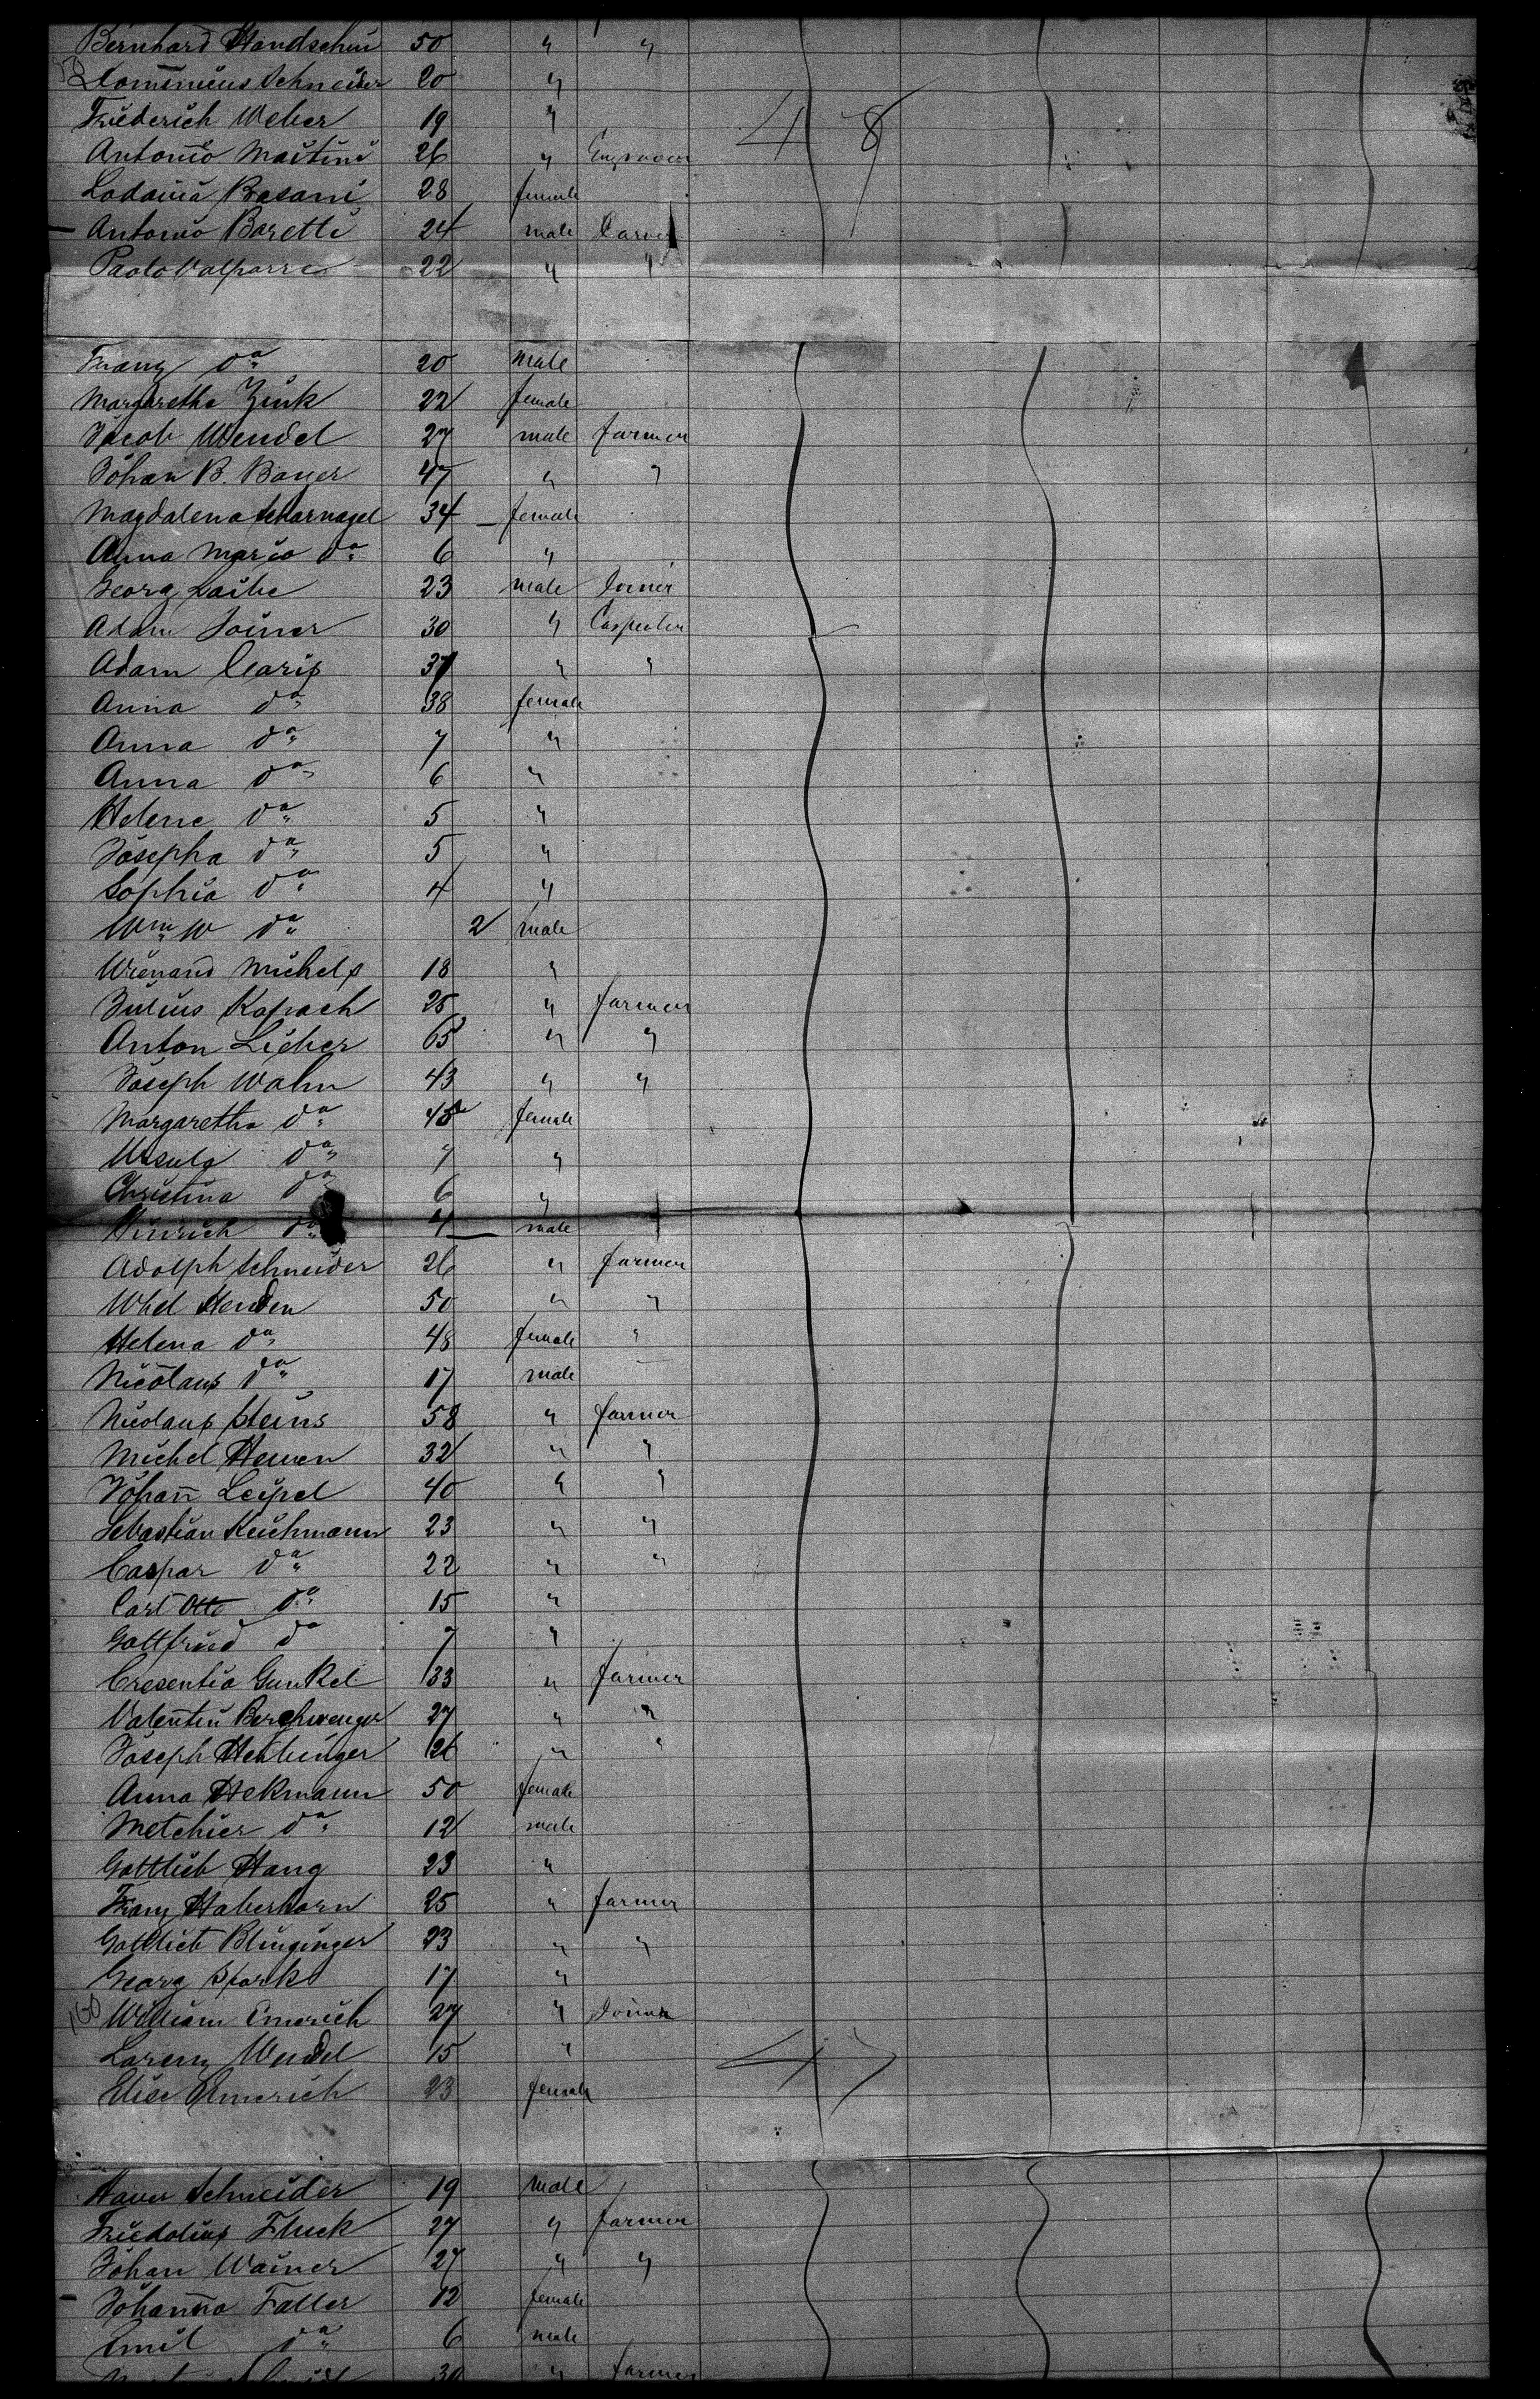 Bernhard Handschin 50 " "
Dominicus Schneider 20 "
Friederich Weber 19 "
48
Antonio Martini 26 " Engraver
Lodovia Basani 28 female
Antonio Baretti 24 male
Paolo 22 " "
Franz do 20 male
Margaretha Zink 22 female
Jacob Wendel 27 male farmer
Johan B. Bayer 47 " "
Magdalena Scharnagel 34 female
Anna Maria do 6 "
Georg Laibe 23 male Joiner
Adam Joiner 30 " Carpenter
Adam Caris 37 " "
Anna do 38 female
Anna do 7 "
Anna do 6 "
Helene do 5 "
Josepha do 5 "
Sophia do 4 "
Wm W do 2 male
Wienand Michels 18 "
Julius Kopach 25 " farmer
Anton Licher 65 " "
Joseph Wahn 43 " "
Margaretha do female
Ursula do 7 "
Christina do 6 "
Hinrich do 4 male
Adolph Schneider 26 " farmer
Whel Henden 50 " "
Helena do 48 female "
Nicolaus do 17 male
Nicolaus Heins 58 " farmer
Michel Hemen 32 " "
Johann Leipel 40 " "
Sebastian Keichmann 23 " "
Caspar do 22 " "
Carl Otto do 15 "
Gottfried do 7 "
Cresentia Gunkel 33 " farmer
Valentin 27 " "
Joseph 26 " "
Anna Hekmann 50 female
Metchier do 12 male
Gottlieb Haug 23 "
Franz Haberkorn 25 " farmer
Gottlieb Blinginger 23 " "
Georg Stark 17 "
160 William Emerich 27 " Joiner
Lorenz Wendel 15 "
47
Elise Emerich 23 female
Xaver Schneider 19 male
Friedolins Fluck 27 " farmer
Johan Wainer 27 " "
Johanna Faller 12 female
Emil do 6 male
30 " farmer